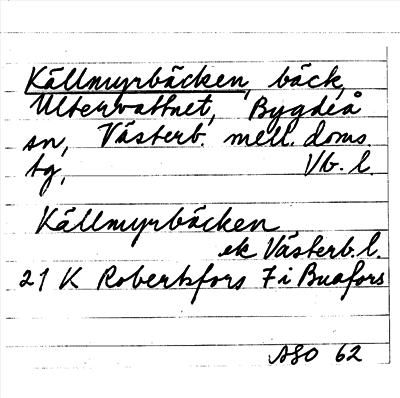 Källmyrbäcken, bäck,
Ultervattnet, Bygdeå
sn, Västerb. mell. doms.
tg, Vb. l.
Källmyrbäcken
ek Västerb. l.
21 K Robertsfors 7 i
ASO 62